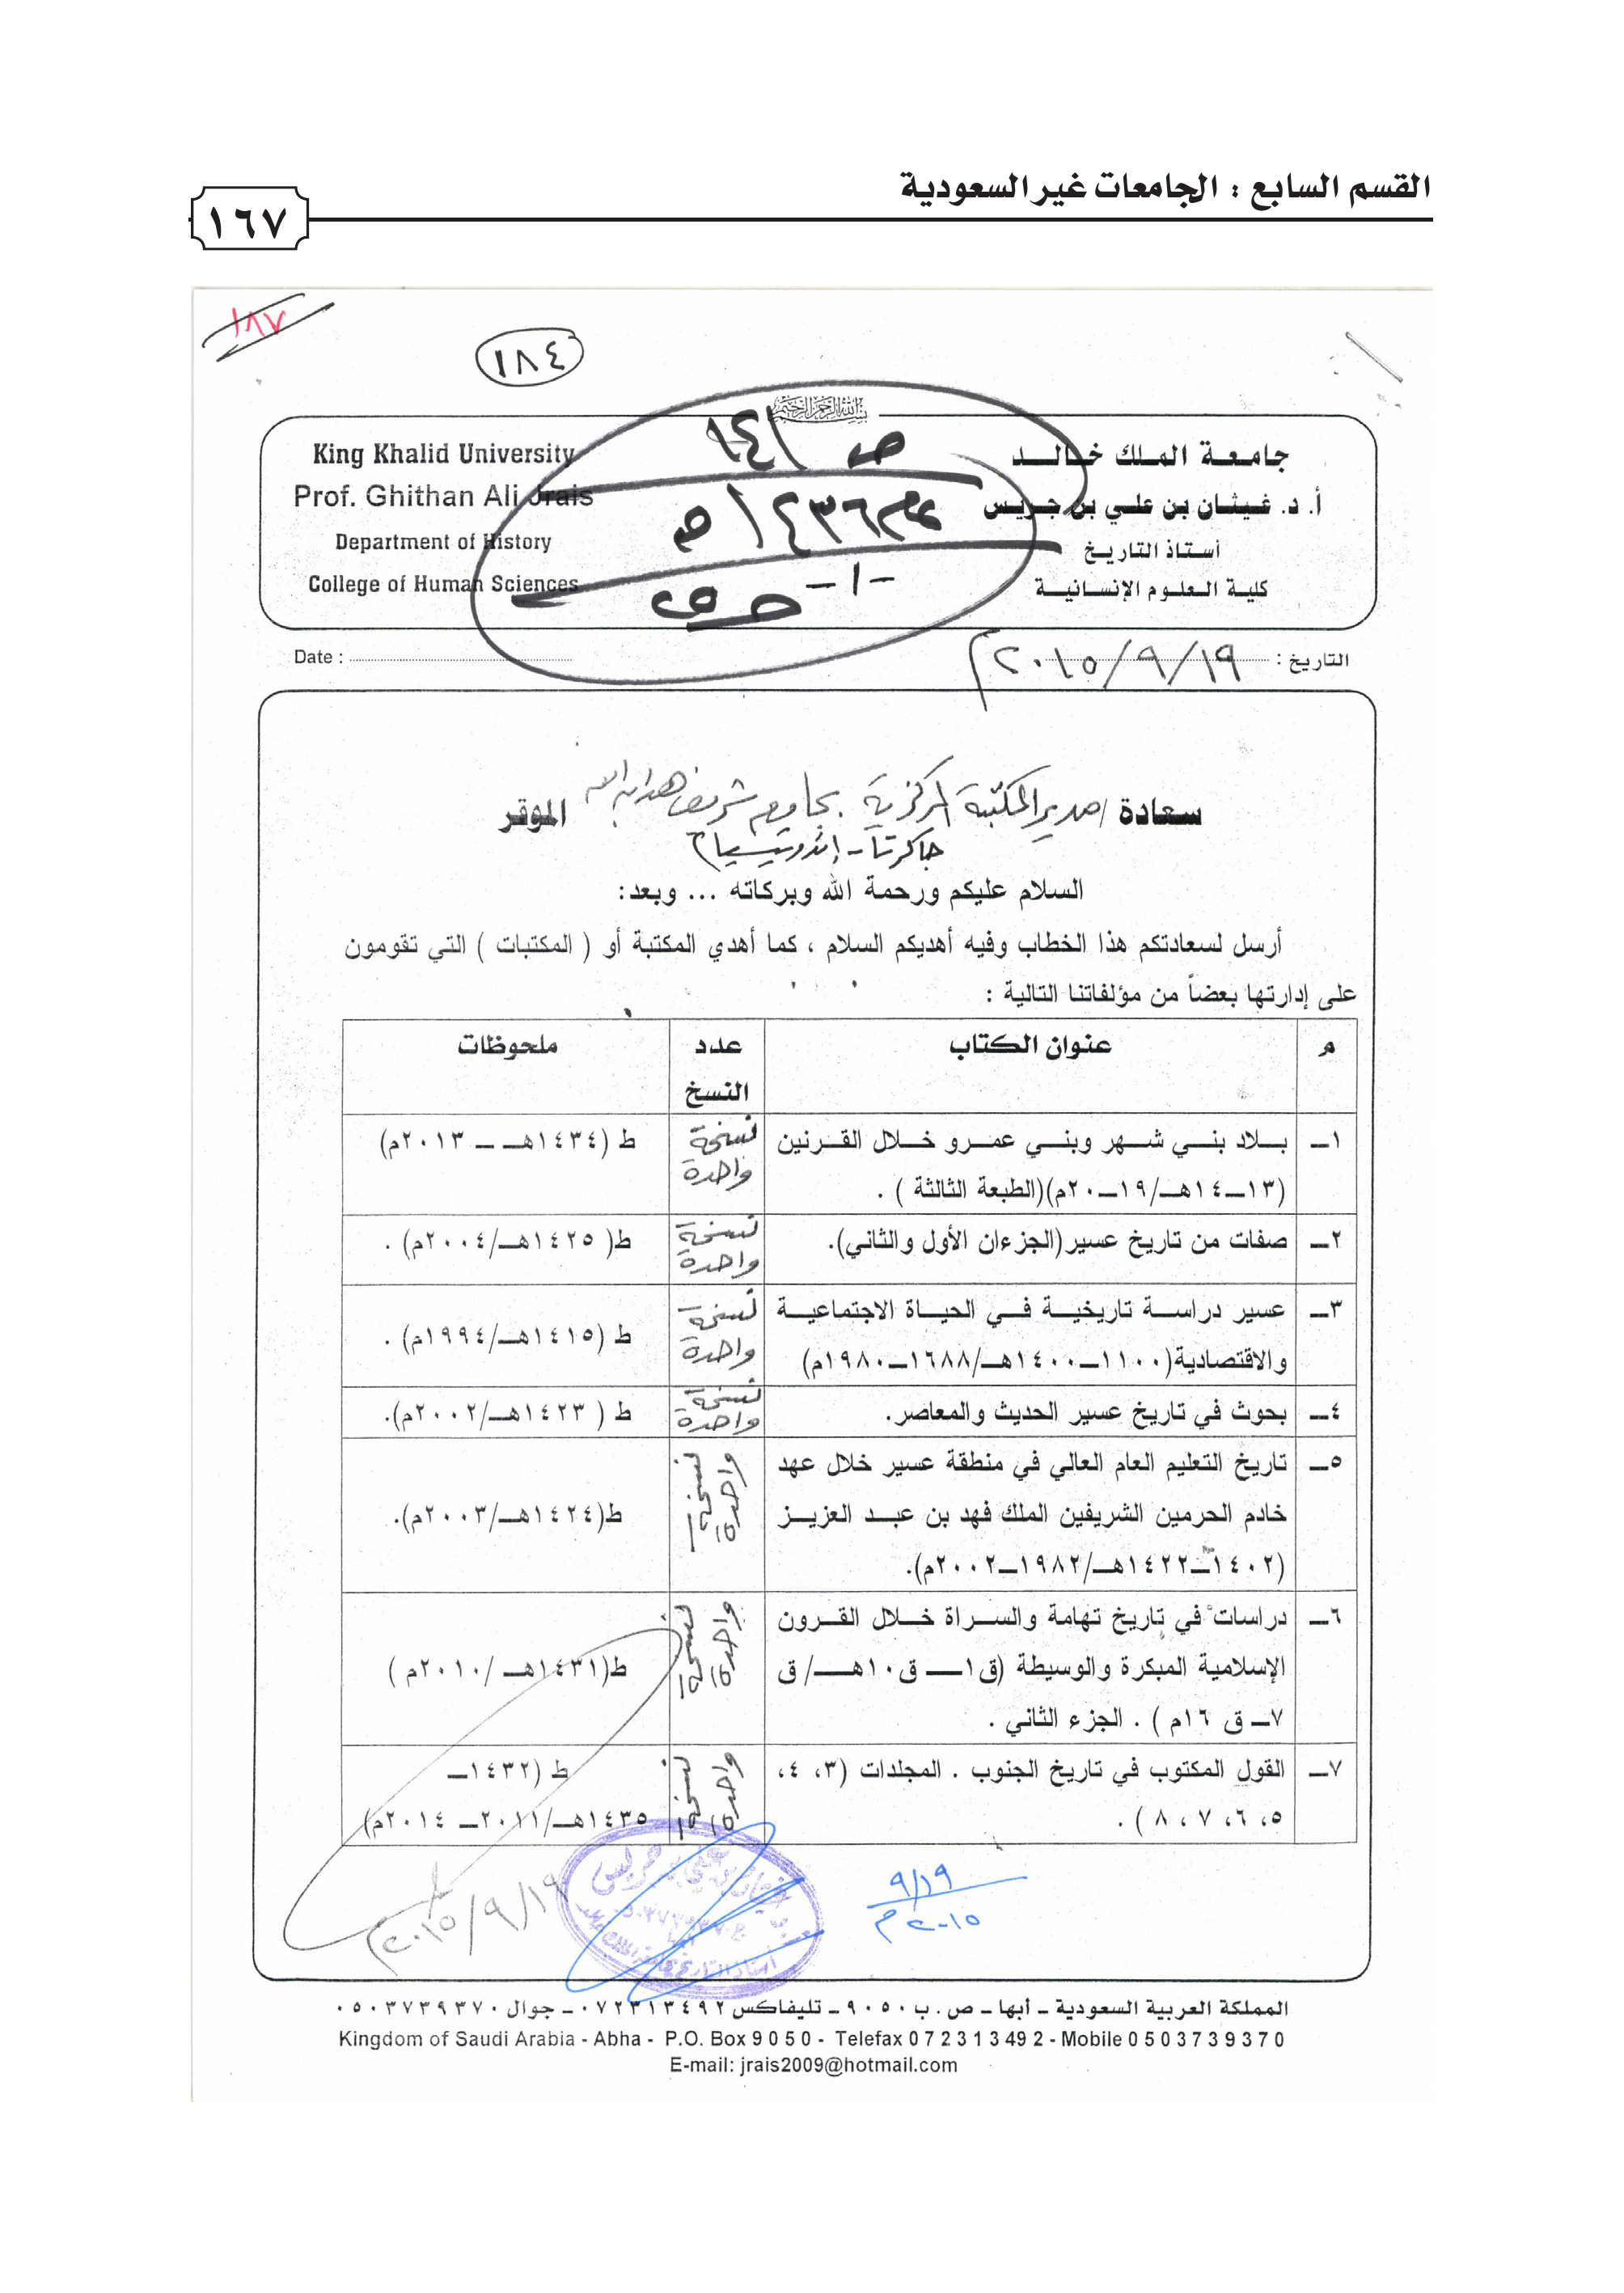 القسم السابع : الجامعات غير السعودية
١٦٧
١٨٧
١٨٤
جامعة الملك خالد
أ. د. غيثان بن علي بن جريس
أستاذ التاريخ
كلية العلوم الإنسانية
King Khalid University
Prof. Ghithan Ali Jrais
Department of History
College of Human Sciences
ص ١٤١
عام ١٤٣٦هـ
-١-
التاريخ : ٢٠١٥/٩/١٩م
Date :
سعادة / مدير المكتبة المركزية بجامعة شريف هداية الله الموقر
جاكرتا - إندونيسيا
السلام عليكم ورحمة الله وبركاته ... وبعد:
أرسل لسعادتكم هذا الخطاب وفيه أهديكم السلام ، كما أهدي المكتبة أو ( المكتبات ) التي تقومون
على إدارتها بعضاً من مؤلفاتنا التالية :
م عنوان الكتاب عدد النسخ ملحوظات
١ـ بلاد بني شهر وبني عمرو خلال القرنين نسخة ط (١٤٣٤هـ ـ ٢٠١٣م)
(١٣ـ١٤هـ/١٩ـ٢٠م)(الطبعة الثالثة ) . واحدة
٢ـ صفات من تاريخ عسير(الجزءان الأول والثاني). نسخة واحدة ط( ١٤٢٥هـ/٢٠٠٤م) .
٣ـ عسير دراسة تاريخية في الحياة الاجتماعية نسخة ط (١٤١٥هـ/١٩٩٤م) .
والاقتصادية(١١٠٠ـ١٤٠٠هـ/١٦٨٨ـ١٩٨٠م) واحدة
٤ـ بحوث في تاريخ عسير الحديث والمعاصر. نسخة واحدة ط ( ١٤٢٣هـ/٢٠٠٢م).
٥ـ تاريخ التعليم العام العالي في منطقة عسير خلال عهد
خادم الحرمين الشريفين الملك فهد بن عبد العزيز نسخة واحدة ط(١٤٢٤هـ/٢٠٠٣م).
(١٤٠٢ـ١٤٢٢هـ/١٩٨٢ـ٢٠٠٢م).
٦ـ دراسات في تاريخ تهامة والسراة خلال القرون
الإسلامية المبكرة والوسيطة (ق١ـ ق١٠هـ/ ق نسخة واحدة ط(١٤٣١هـ /٢٠١٠م )
٧ـ ق ١٦م ) . الجزء الثاني .
٧ـ القول المكتوب في تاريخ الجنوب . المجلدات (٣، ٤، نسخة واحدة ط (١٤٣٢ـ
٥، ٦، ٧ ، ٨ ) . ١٤٣٥هـ/٢٠١١ـ ٢٠١٤م)
٩/١٩
٢٠١٥م
٢٠١٥/٩/١٩م
المملكة العربية السعودية ـ أبها ـ ص . ب ٩٠٥٠ ـ تليفاكس ٠٧٢٣١٣٤٩٢ ـ جوال ٠٥٠٣٧٣٩٣٧٠
Kingdom of Saudi Arabia - Abha - P.O. Box 9 0 5 0 - Telefax 0 7 2 3 1 3 4 9 2 - Mobile 0 5 0 3 7 3 9 3 7 0
E-mail: jrais2009@hotmail.com